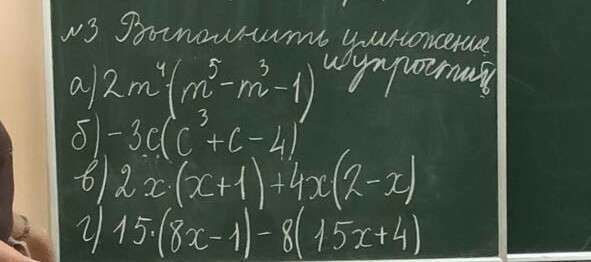 №3 Выполнить умножение
и упростить
а) 2m⁴·(m⁵-m³-1)
б) -3c(c³+c-4)
в) 2x·(x+1)+4x(2-x)
г) 15·(8x-1)-8(15x+4)